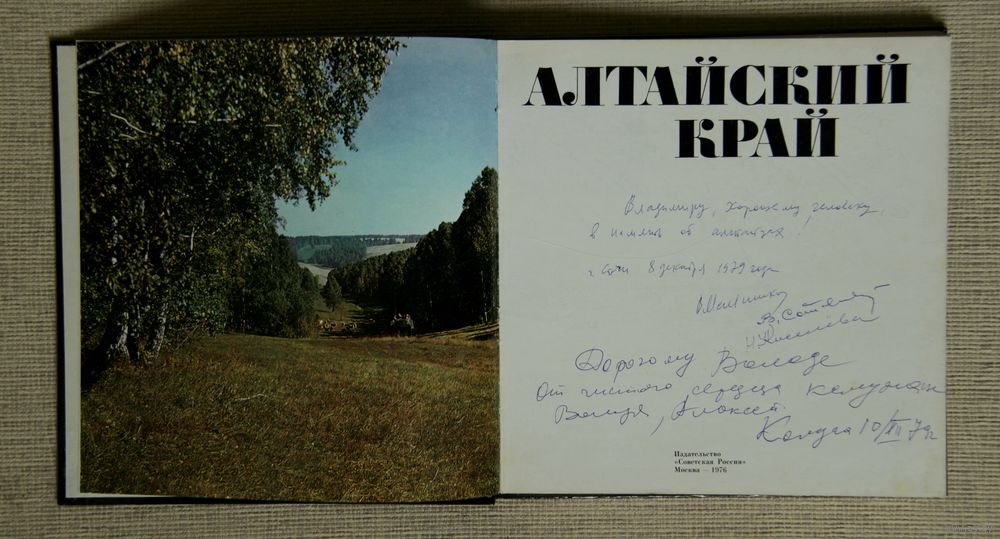 АЛТАЙСКИЙ
КРАЙ
Владимиру, хорошему человеку,
в память об алтайцах!
г. Сочи 8 декабря 1979 года
Дорогому Володе
От чистого сердца калужан
Валиря, Алексей.
Калуга 10/XII 79г
Издательство
«Советская Россия»
Москва — 1976